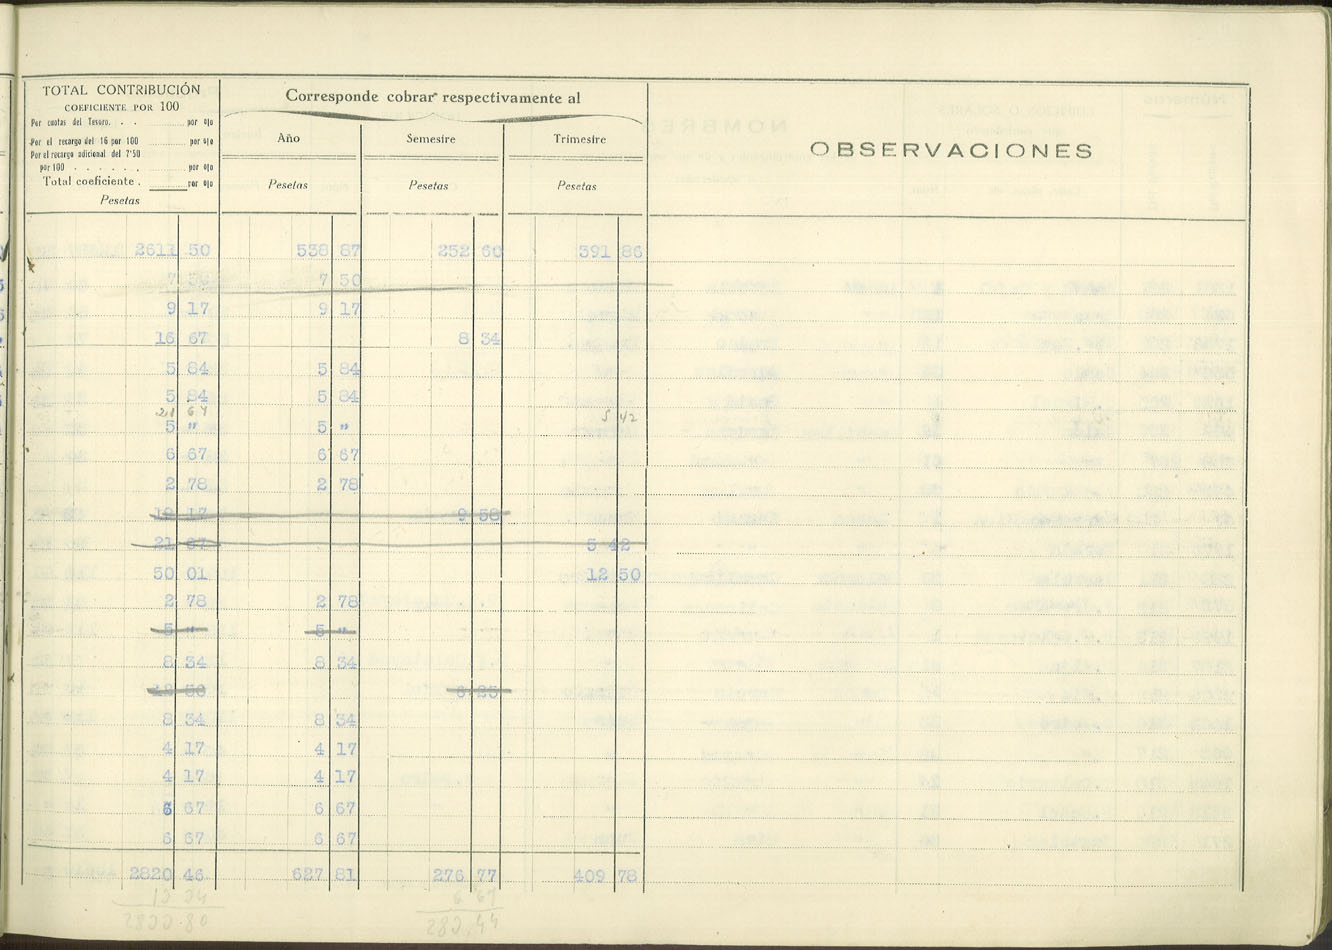 TOTAL CONTRIBUCIÓN
COEFICIENTE POR 100
Por cuotas del Tesoro. . . por 0/0
Por el recargo del 16 por 100 por 0/0
Por el recargo adicional del 7'50
por 100 . . . . . . por 0/0
Total coeficiente . por 0/0
Pesetas
Corresponde cobrar respectivamente al
Año Semestre Trimestre
Pesetas Pesetas Pesetas
OBSERVACIONES
2611 50 538 87 252 60 391 86
7 50 7 50
9 17 9 17
16 67 8 34
5 84 5 84
5 84 5 84
21 67 5 42
5 " 5 "
6 67 6 67
2 78 2 78
19 17 9 58
21 67 5 42
50 01 12 50
2 78 2 78
5 " 5 "
8 34 8 34
12 50 6 25
8 34 8 34
4 17 4 17
4 17 4 17
6 67 6 67
6 67 6 67
2820 46 627 81 276 77 409 78
6 67